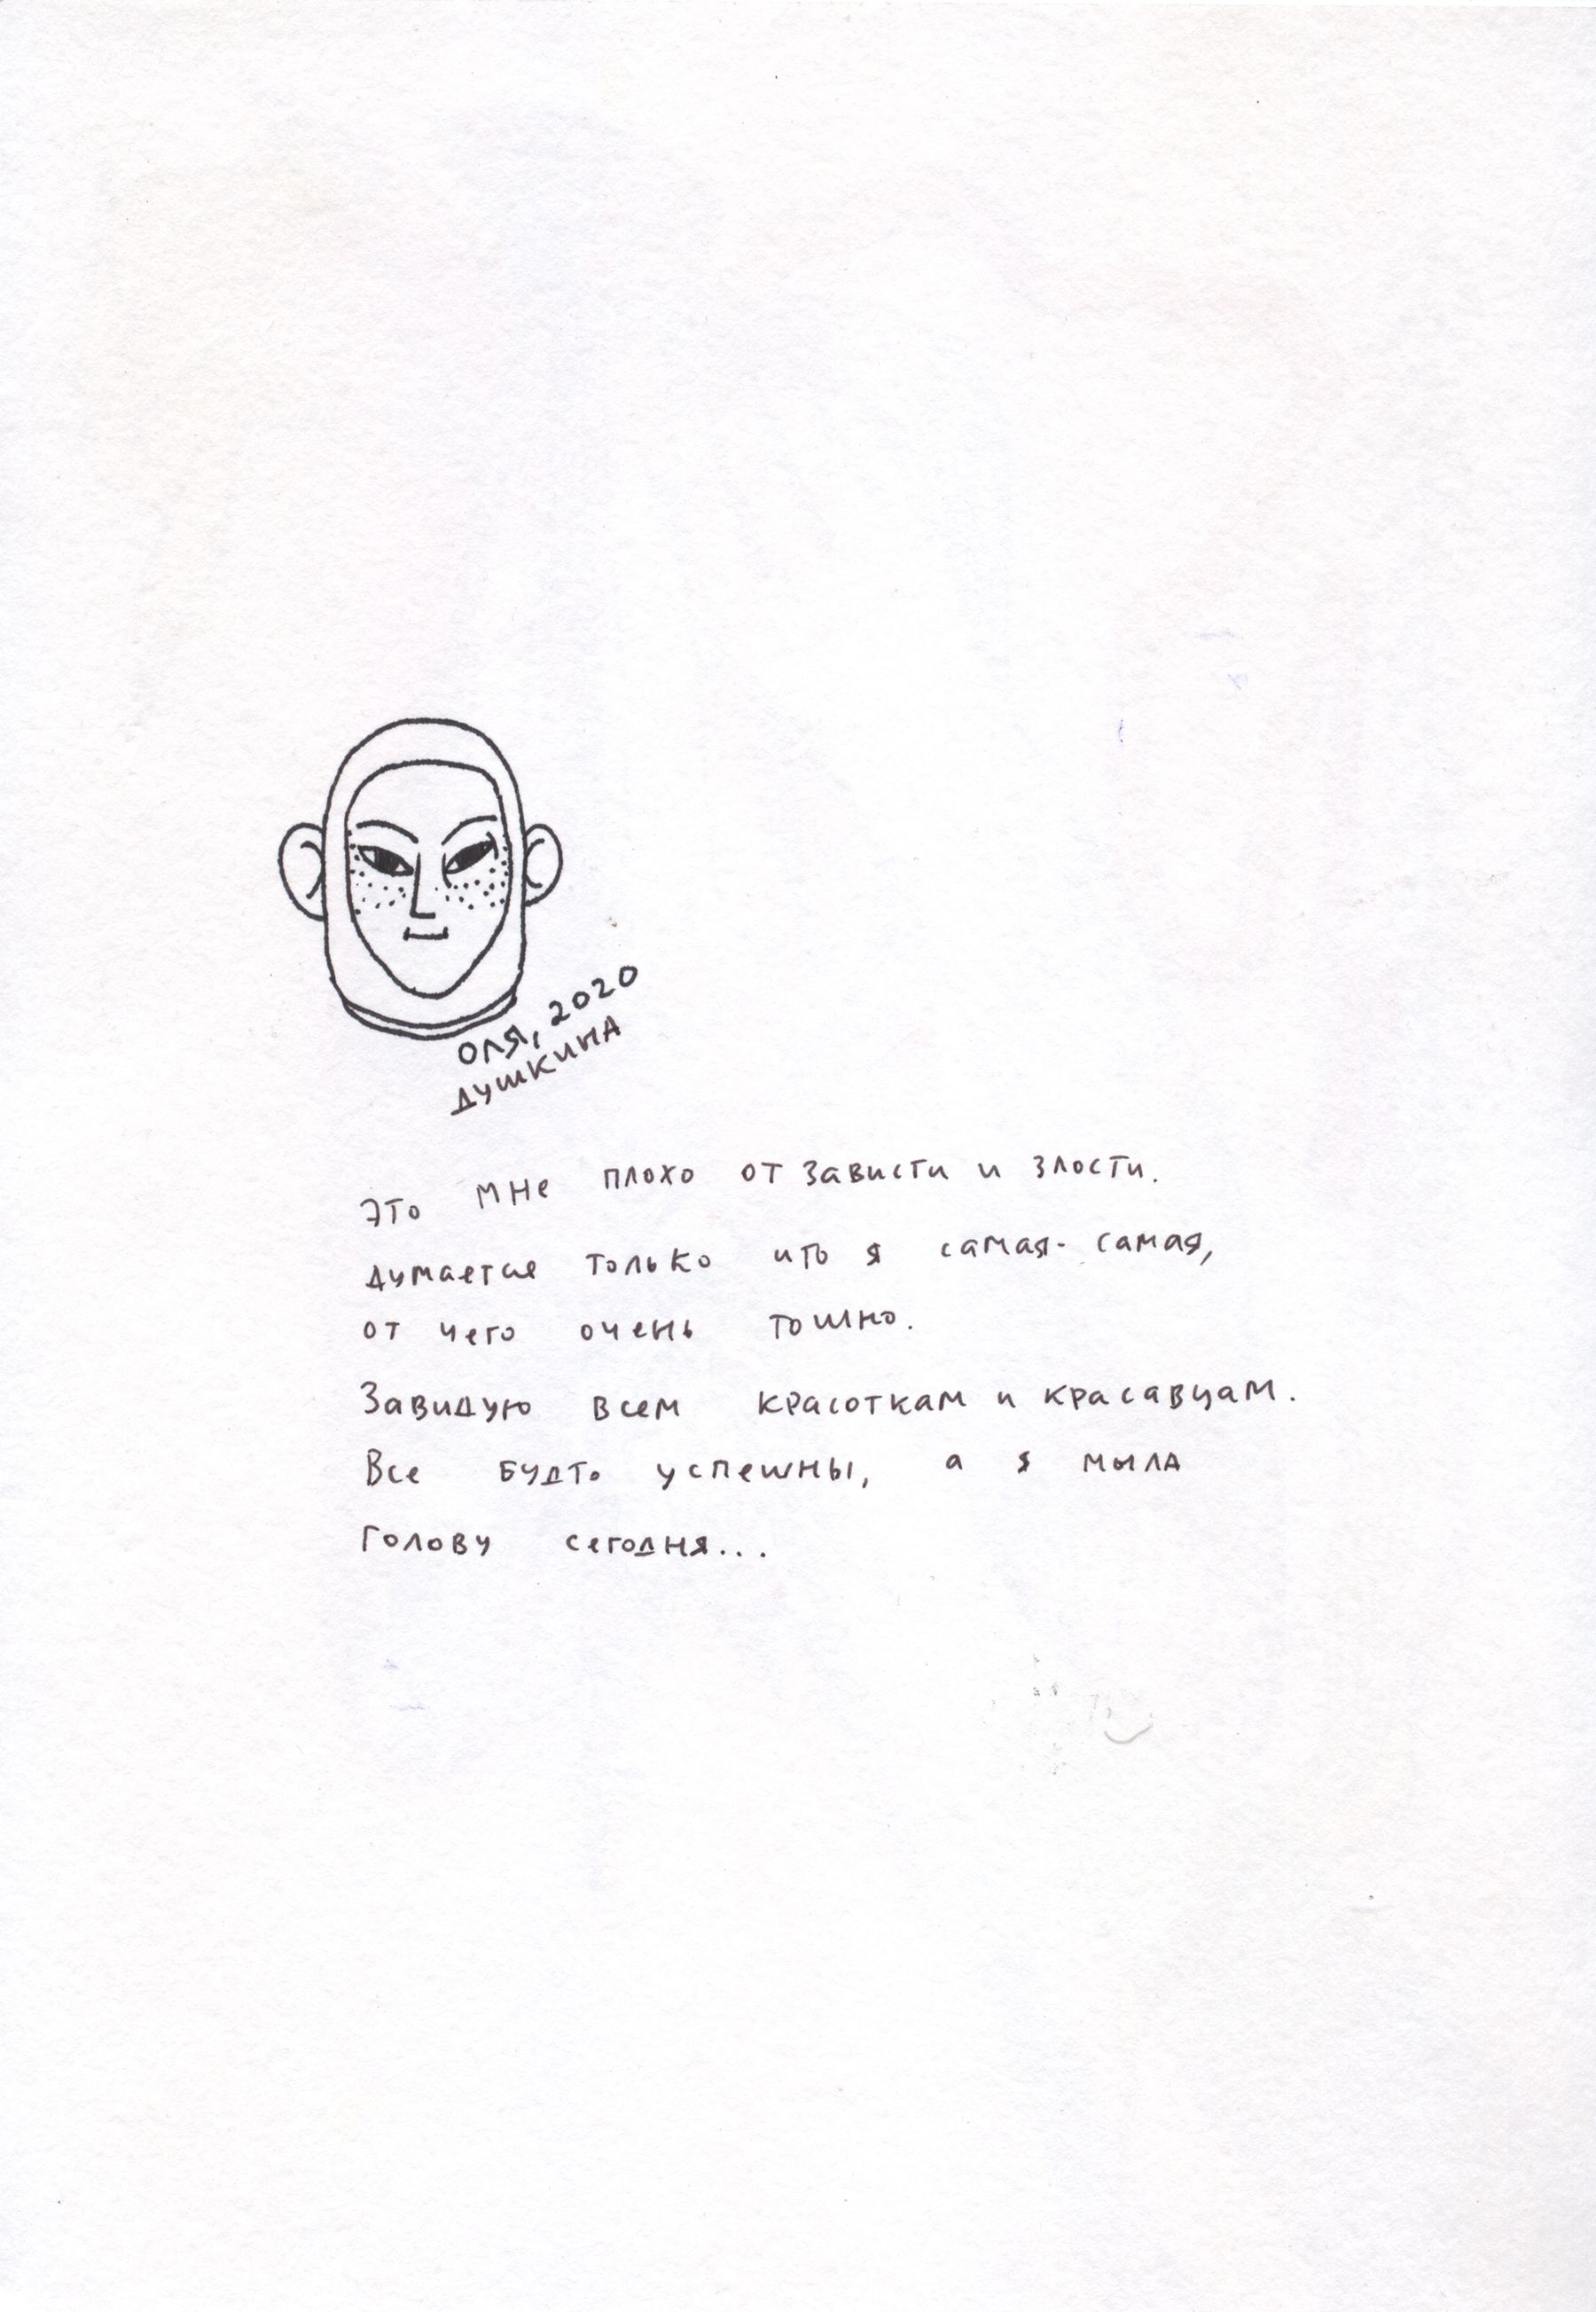 ОЛЯ, 2020
ДУШКИНА
Это мне плохо от зависти и злости.
думается только что я самая-самая,
от чего очень тошно.
Завидую всем красоткам и красавцам.
Все будто успешны, а я мыла
голову сегодня...